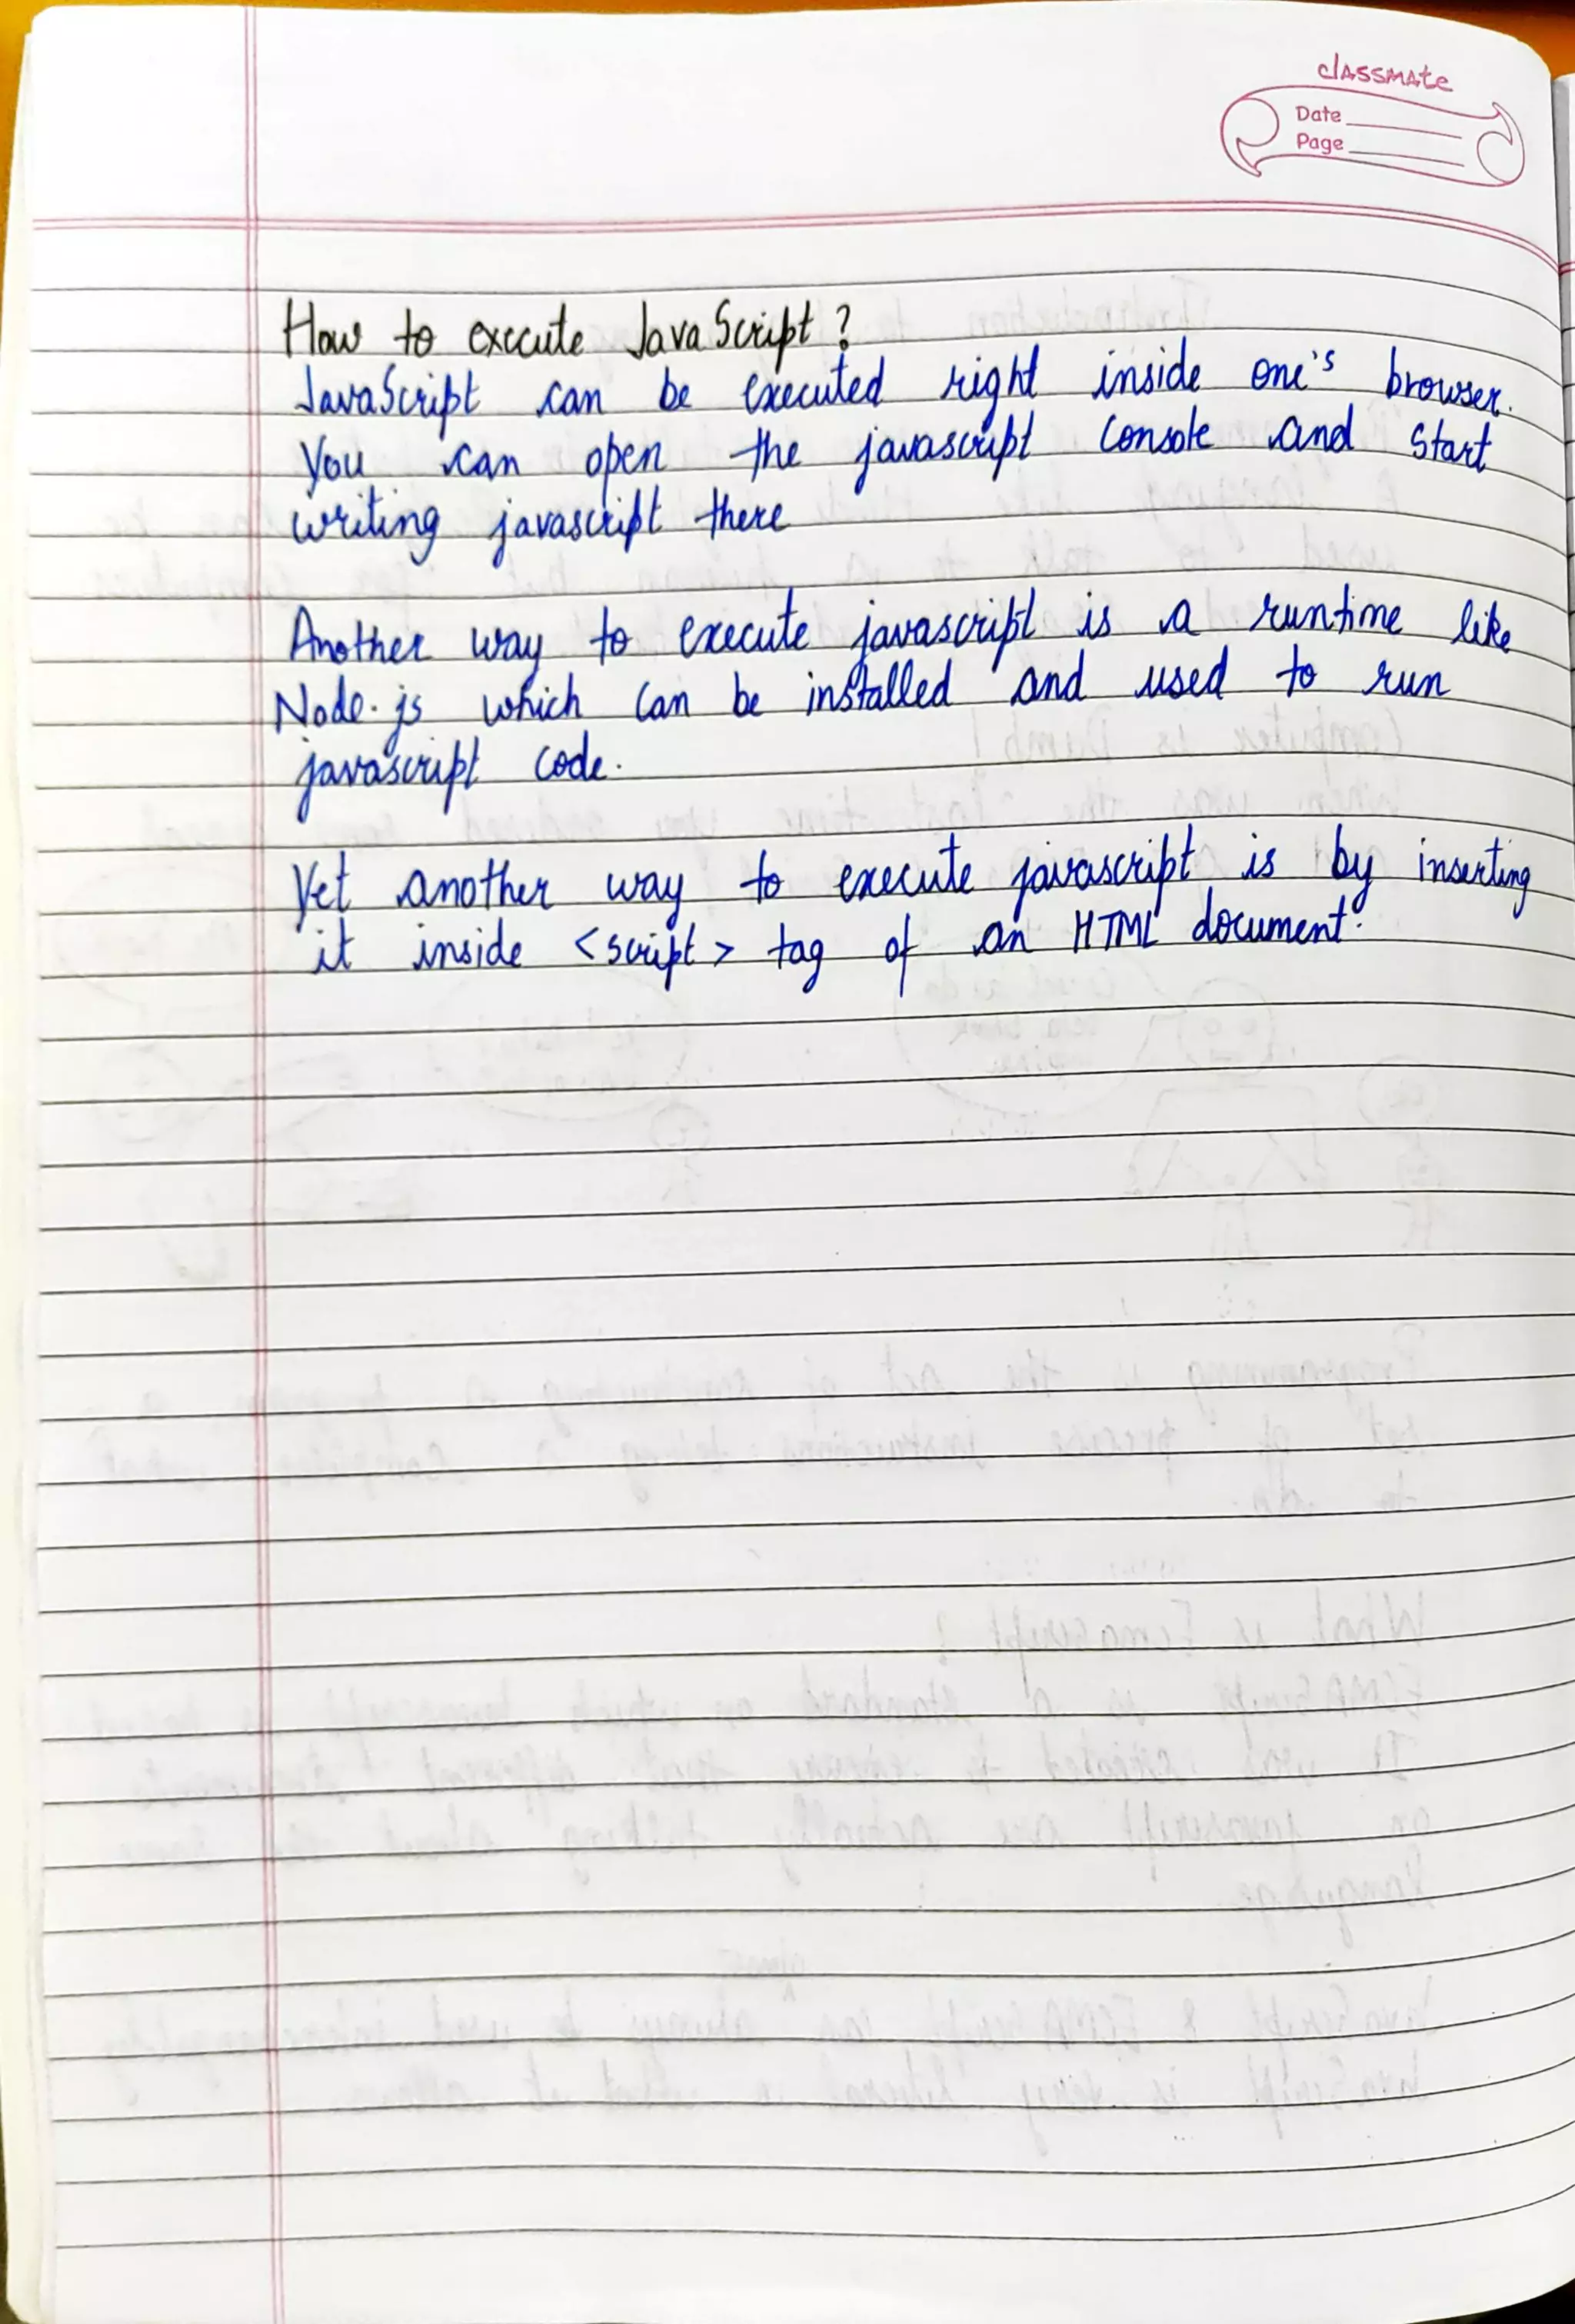 classmate
Date
Page
How to execute JavaScript?
JavaScript can be executed right inside one's browser.
You can open the javascript console and start
writing javascript there
Another way to execute javascript is a runtime like
Node.js which can be installed and used to run
javascript code.
Yet another way to execute javascript is by inserting
it inside <script> tag of an HTML document.